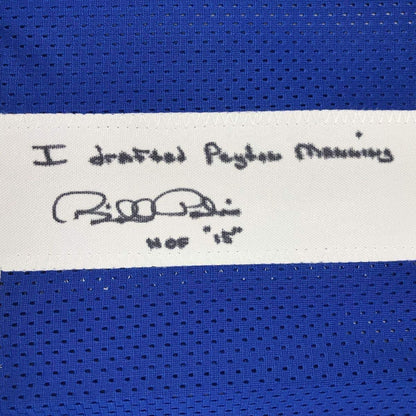 I drafted Peyton Manning
Bill Polian
HOF "15"